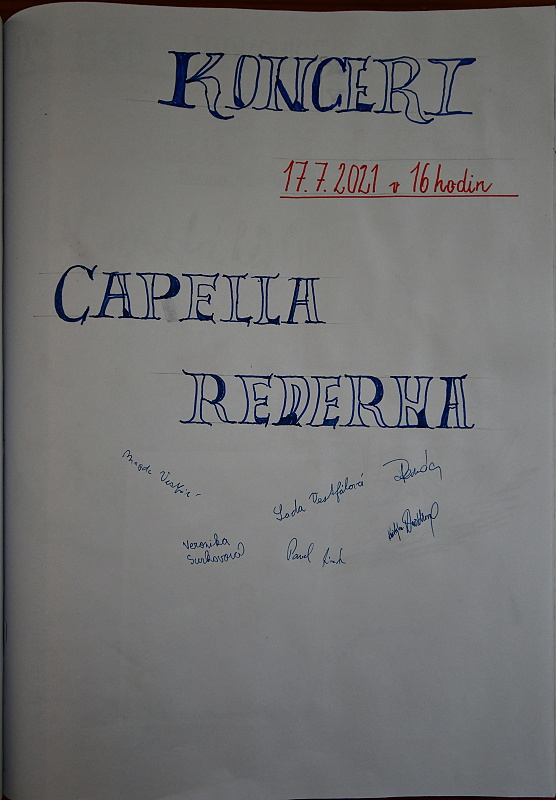 KONCERT
17.7.2021 v 16 hodin
CAPELLA
REDERNA
Magda
Lada Vestfálová
Veronika
Surkovová
Pavel